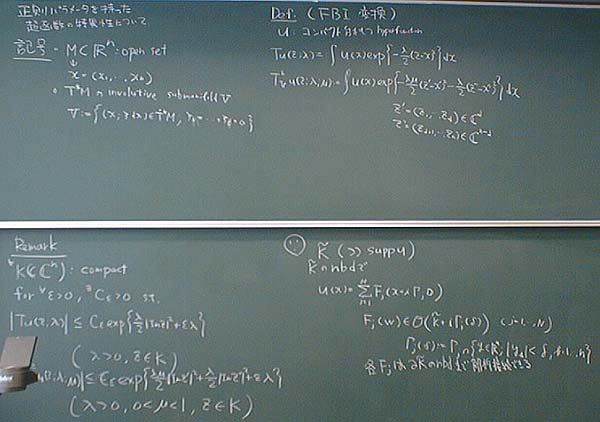 正則パラメータを持った
超函数の特異性について
記号・M⊂ℝⁿ: open set
x=(x₁,…,xₙ)
T*M ∩ involutive submanifold V
V:={(x;ξdx)∈T*M, ξ₁=…=ξd=0}
Def. (FBI 変換)
u: コンパクト台をもつ hyperfunction
Tu(z,λ)=∫u(x)exp{-λ/2(z-x)²}dx
T²ᵥu(z;λ,μ)=∫u(x)exp{-λμ/2(z'-x')²-λ/2(z''-x'')²}dx
z'=(z₁,…,zd)∈ℂᵈ
z''=(zd₊₁,…,zₙ)∈ℂⁿ⁻ᵈ
Remark
∀K(⊂ℂⁿ): compact
for ∀ε>0, ∃Cε>0 s.t.
|Tu(z,λ)|≤Cε exp{λ/2|Im z|²+ελ}
(λ>0, z∈K)
u(z;λ,μ)|≤Cε exp{λμ/2|Im z'|²+λ/2|Im z''|²+ελ}
(λ>0, 0<μ<1, z∈K)
K̃ (⊃⊃ supp u)
K̃ の nbd で
u(x)=∑ᴺⱼ₌₁Fⱼ(x+iΓⱼ0)
Fⱼ(w)∈𝒪(K̃+iΓⱼ(δ)) (j=1,…,N)
Γⱼ(δ):=Γⱼ∩{y∈ℝⁿ; |yₖ|<δ, k=1,…,n}
各Fⱼは∂K̃の nbd まで解析接続できる